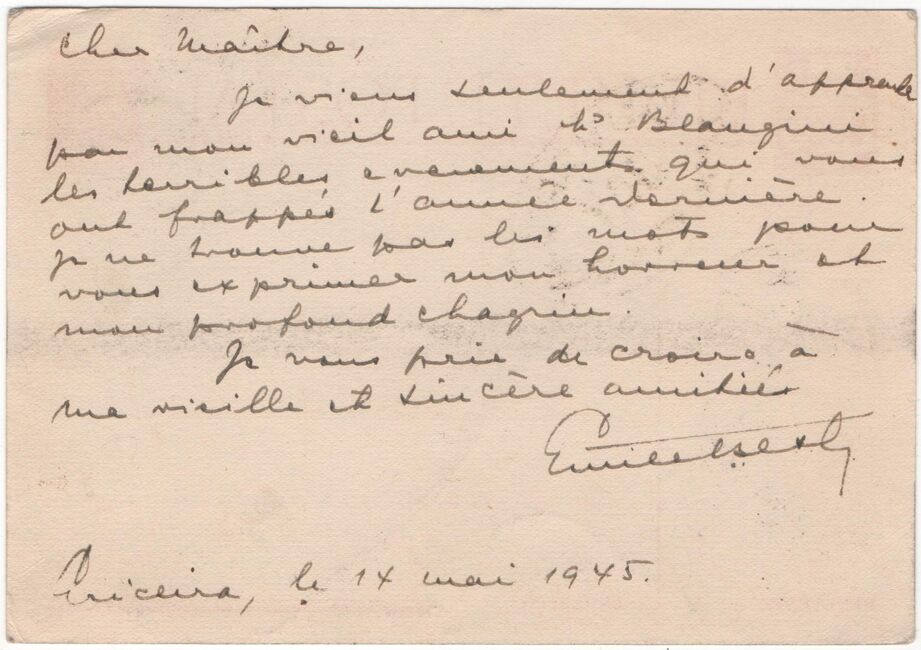 Cher Maître,
Je viens seulement d'apprendre
par mon vieil ami Beaugini
les terribles evenements qui vous
ont frappés l'année dernière.
Je ne trouve pas les mots pour
vous exprimer mon horreur et
mon profond chagrin.
Je vous prie de croire à
ma vieille et sincère amitiés
Ericeira, le 14 mai 1945.